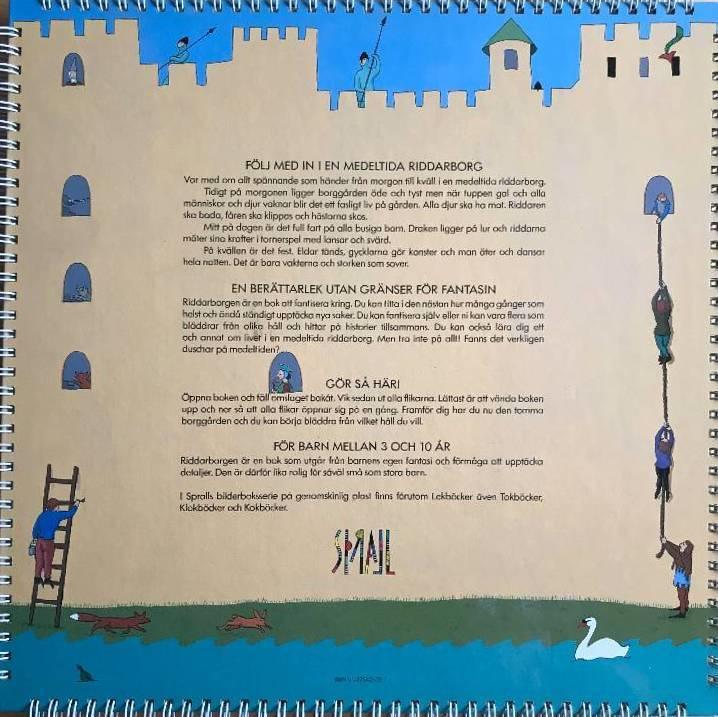 FÖLJ MED IN I EN MEDELTIDA RIDDARBORG
Var med om allt spännande som händer från morgon till kväll i en medeltida riddarborg.
Tidigt på morgonen ligger borggården öde och tyst men när tuppen gal och alla
människor och djur vaknar blir det ett fasligt liv på gården. Alla djur ska ha mat. Riddaren
ska bada, fåren ska klippas och hästarna skos.
Mitt på dagen är det full fart på alla busiga barn. Draken ligger på lur och riddarna
mäter sina krafter i tornerspel med lansar och svärd.
På kvällen är det fest. Eldar tänds, gycklarna gör konster och man äter och dansar
hela natten. Det är bara vakterna och storken som sover.
EN BERÄTTARLEK UTAN GRÄNSER FÖR FANTASIN
Riddarborgen är en bok att fantisera kring. Du kan titta i den nästan hur många gånger som
helst och ändå ständigt upptäcka nya saker. Du kan fantisera själv eller ni kan vara flera som
bläddrar från olika håll och hittar på historier tillsammans. Du kan också lära dig ett
och annat om livet i en medeltida riddarborg. Men tro inte på allt! Fanns det verkligen
duschar på medeltiden?
GÖR SÅ HÄR!
Öppna boken och fäll omslaget bakåt. Vik sedan ut alla flikarna. Lättast är att vända boken
upp och ner så att alla flikar öppnar sig på en gång. Framför dig har du nu den tomma
borggården och du kan börja bläddra från vilket håll du vill.
FÖR BARN MELLAN 3 OCH 10 ÅR
Riddarborgen är en bok som utgår från barnens egen fantasi och förmåga att upptäcka
detaljer. Den är därför lika rolig för såväl små som stora barn.
I Spralls bilderboksserie på genomskinlig plast finns förutom Lekböcker även Tokböcker,
Klokböcker och Kokböcker.
SPRALL
ISBN